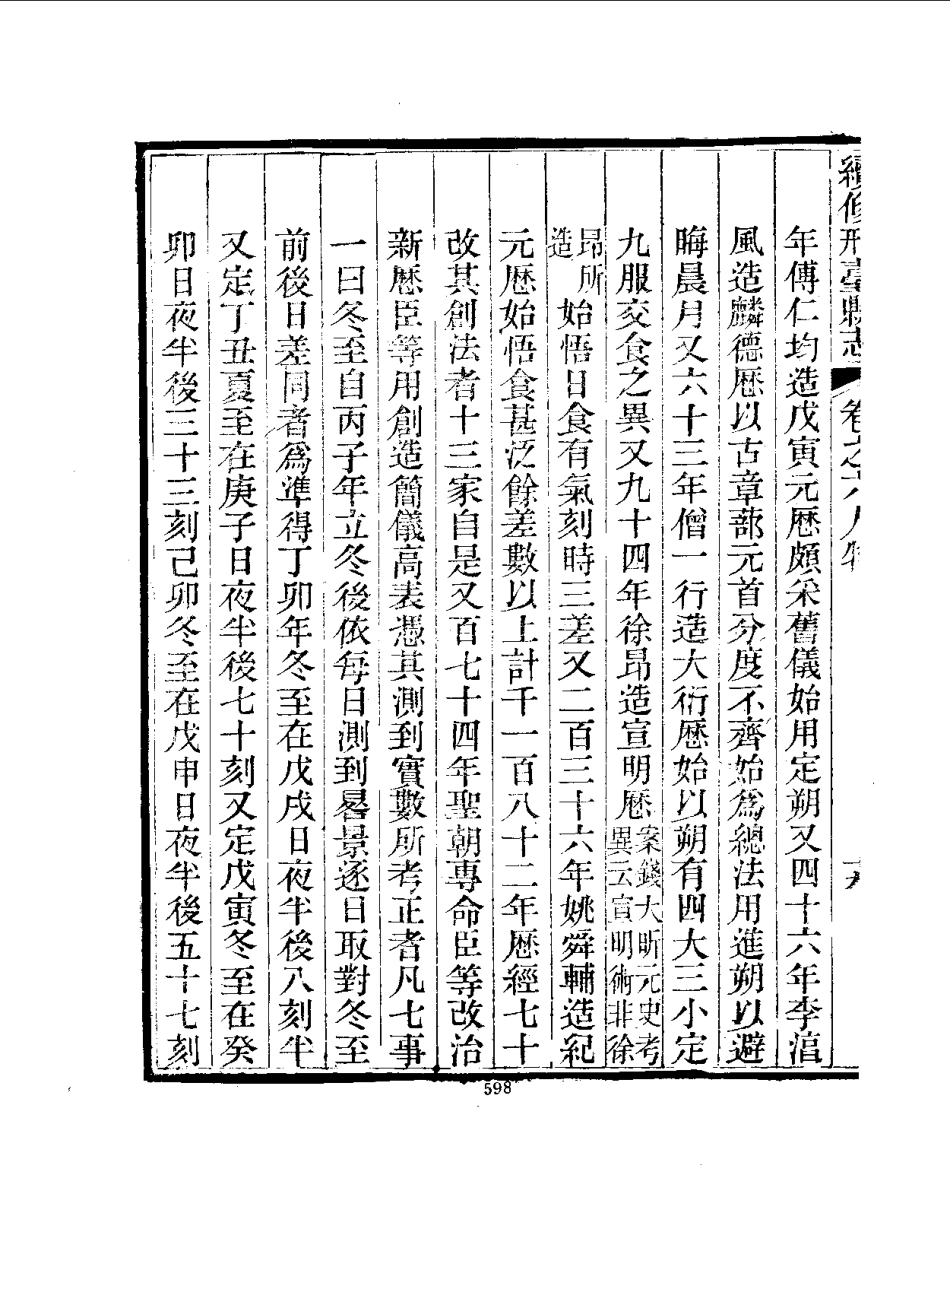 續修邢臺縣志 卷之六 人物
年傅仁均造戊寅元厯頗采舊儀始用定朔又四十六年李淳
風造麟德厯以古章蔀元首分度不齊始爲總法用進朔以避
晦晨月又六十三年僧一行造大衍厯始以朔有四大三小定
九服交食之異又九十四年徐昂造宣明厯案錢大昕元史考異云宣明術非徐
昂所造始悟日食有氣刻時三差又二百三十六年姚舜輔造紀
元厯始悟食甚泛餘差數以上計千一百八十二年厯經七十
改其創法者十三家自是又百七十四年聖朝專命臣等改治
新厯臣等用創造簡儀高表憑其測到實數所考正者凡七事
一曰冬至自丙子年立冬後依每日測到晷景逐日取對冬至
前後日差同者爲準得丁卯年冬至在戊戌日夜半後八刻半
又定丁丑夏至在庚子日夜半後七十刻又定戊寅冬至在癸
卯日夜半後三十三刻己卯冬至在戊申日夜半後五十七刻
598